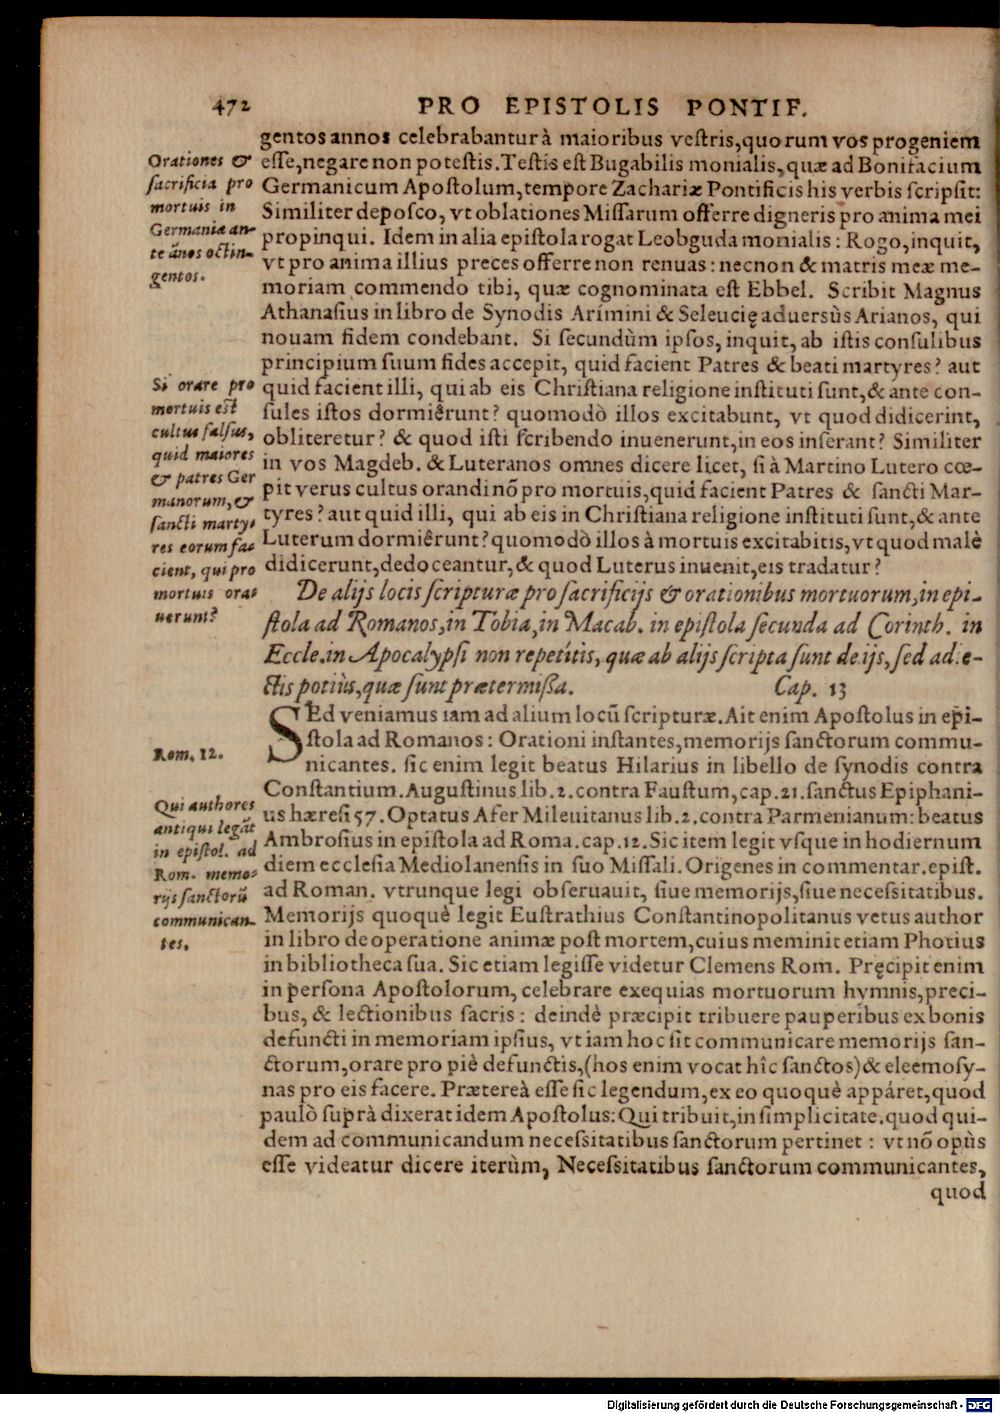 472
PRO EPISTOLIS PONTIF.
gentos annos celebrabantur à maioribus vestris, quorum vos progeniem
esse, negare non potestis. Testis est Bugabilis monialis, quæ ad Bonifacium
Germanicum Apostolum, tempore Zachariæ Pontificis his verbis scripsit:
Similiter deposco, vt oblationes Missarum offerre digneris pro anima mei
propinqui. Idem in alia epistola rogat Leobguda monialis: Rogo, inquit,
vt pro anima illius preces offerre non renuas: necnon & matris meæ me-
moriam commendo tibi, quæ cognominata est Ebbel. Scribit Magnus
Athanasius in libro de Synodis Arimini & Seleucię aduersùs Arianos, qui
nouam fidem condebant. Si secundùm ipsos, inquit, ab istis consulibus
principium suum fides accepit, quid facient Patres & beati martyres? aut
quid facient illi, qui ab eis Christiana religione instituti sunt, & ante con-
sules istos dormiêrunt? quomodò illos excitabunt, vt quod didicerint,
obliteretur? & quod isti scribendo inuenerunt, in eos inserant? Similiter
in vos Magdeb. & Luteranos omnes dicere licet, si à Martino Lutero cœ-
pit verus cultus orandi nō pro mortuis, quid facient Patres & sancti Mar-
tyres? aut quid illi, qui ab eis in Christiana religione instituti sunt, & ante
Luterum dormiêrunt? quomodò illos à mortuis excitabitis, vt quod malè
didicerunt, dedoceantur, & quod Luterus inuenit, eis tradatur?
Orationes &
sacrificia pro
mortuis in
Germania an-
te ānos octin-
gentos.
Si orare pro
mortuis est
cultus falsus,
quid maiores
& patres Ger
manorum, &
sancti marty-
res eorum fa-
cient, qui pro
mortuis ora-
uerunt?
De alijs locis scripturæ pro sacrificijs & orationibus mortuorum, in epi-
stola ad Romanos, in Tobia, in Macab. in epistola secunda ad Corinth. in
Eccle. in Apocalypsi non repetitis, quæ ab alijs scripta sunt de ijs, sed adie-
ctis potiùs, quæ sunt prætermissa. Cap. 13
SEd veniamus iam ad alium locū scripturæ. Ait enim Apostolus in epi-
stola ad Romanos: Orationi instantes, memorijs sanctorum commu-
nicantes. sic enim legit beatus Hilarius in libello de synodis contra
Constantium. Augustinus lib. 2. contra Faustum, cap. 21. sanctus Epiphani-
us hæresi 57. Optatus Afer Mileuitanus lib. 2. contra Parmenianum: beatus
Ambrosius in epistola ad Roma. cap. 12. Sic item legit vsque in hodiernum
diem ecclesia Mediolanensis in suo Missali. Origenes in commentar. epist.
ad Roman. vtrunque legi obseruauit, siue memorijs, siue necessitatibus.
Memorijs quoquè legit Eustrathius Constantinopolitanus vetus author
in libro de operatione animæ post mortem, cuius meminit etiam Photius
in bibliotheca sua. Sic etiam legisse videtur Clemens Rom. Pręcipit enim
in persona Apostolorum, celebrare exequias mortuorum hymnis, preci-
bus, & lectionibus sacris: deindè præcipit tribuere pauperibus ex bonis
defuncti in memoriam ipsius, vt iam hoc sit communicare memorijs san-
ctorum, orare pro piè defunctis, (hos enim vocat hîc sanctos) & eleemosy-
nas pro eis facere. Prætereà esse sic legendum, ex eo quoquè appáret, quod
paulò suprà dixerat idem Apostolus: Qui tribuit, in simplicitate. quod qui-
dem ad communicandum necessitatibus sanctorum pertinet: vt nō opùs
esse videatur dicere iterùm, Necessitatibus sanctorum communicantes,
quod
Rom. 12.
Qui authores
antiqui legāt
in epistol. ad
Rom. memo-
rijs sanctorū
communican-
tes.
Digitalisierung gefördert durch die Deutsche Forschungsgemeinschaft - DFG